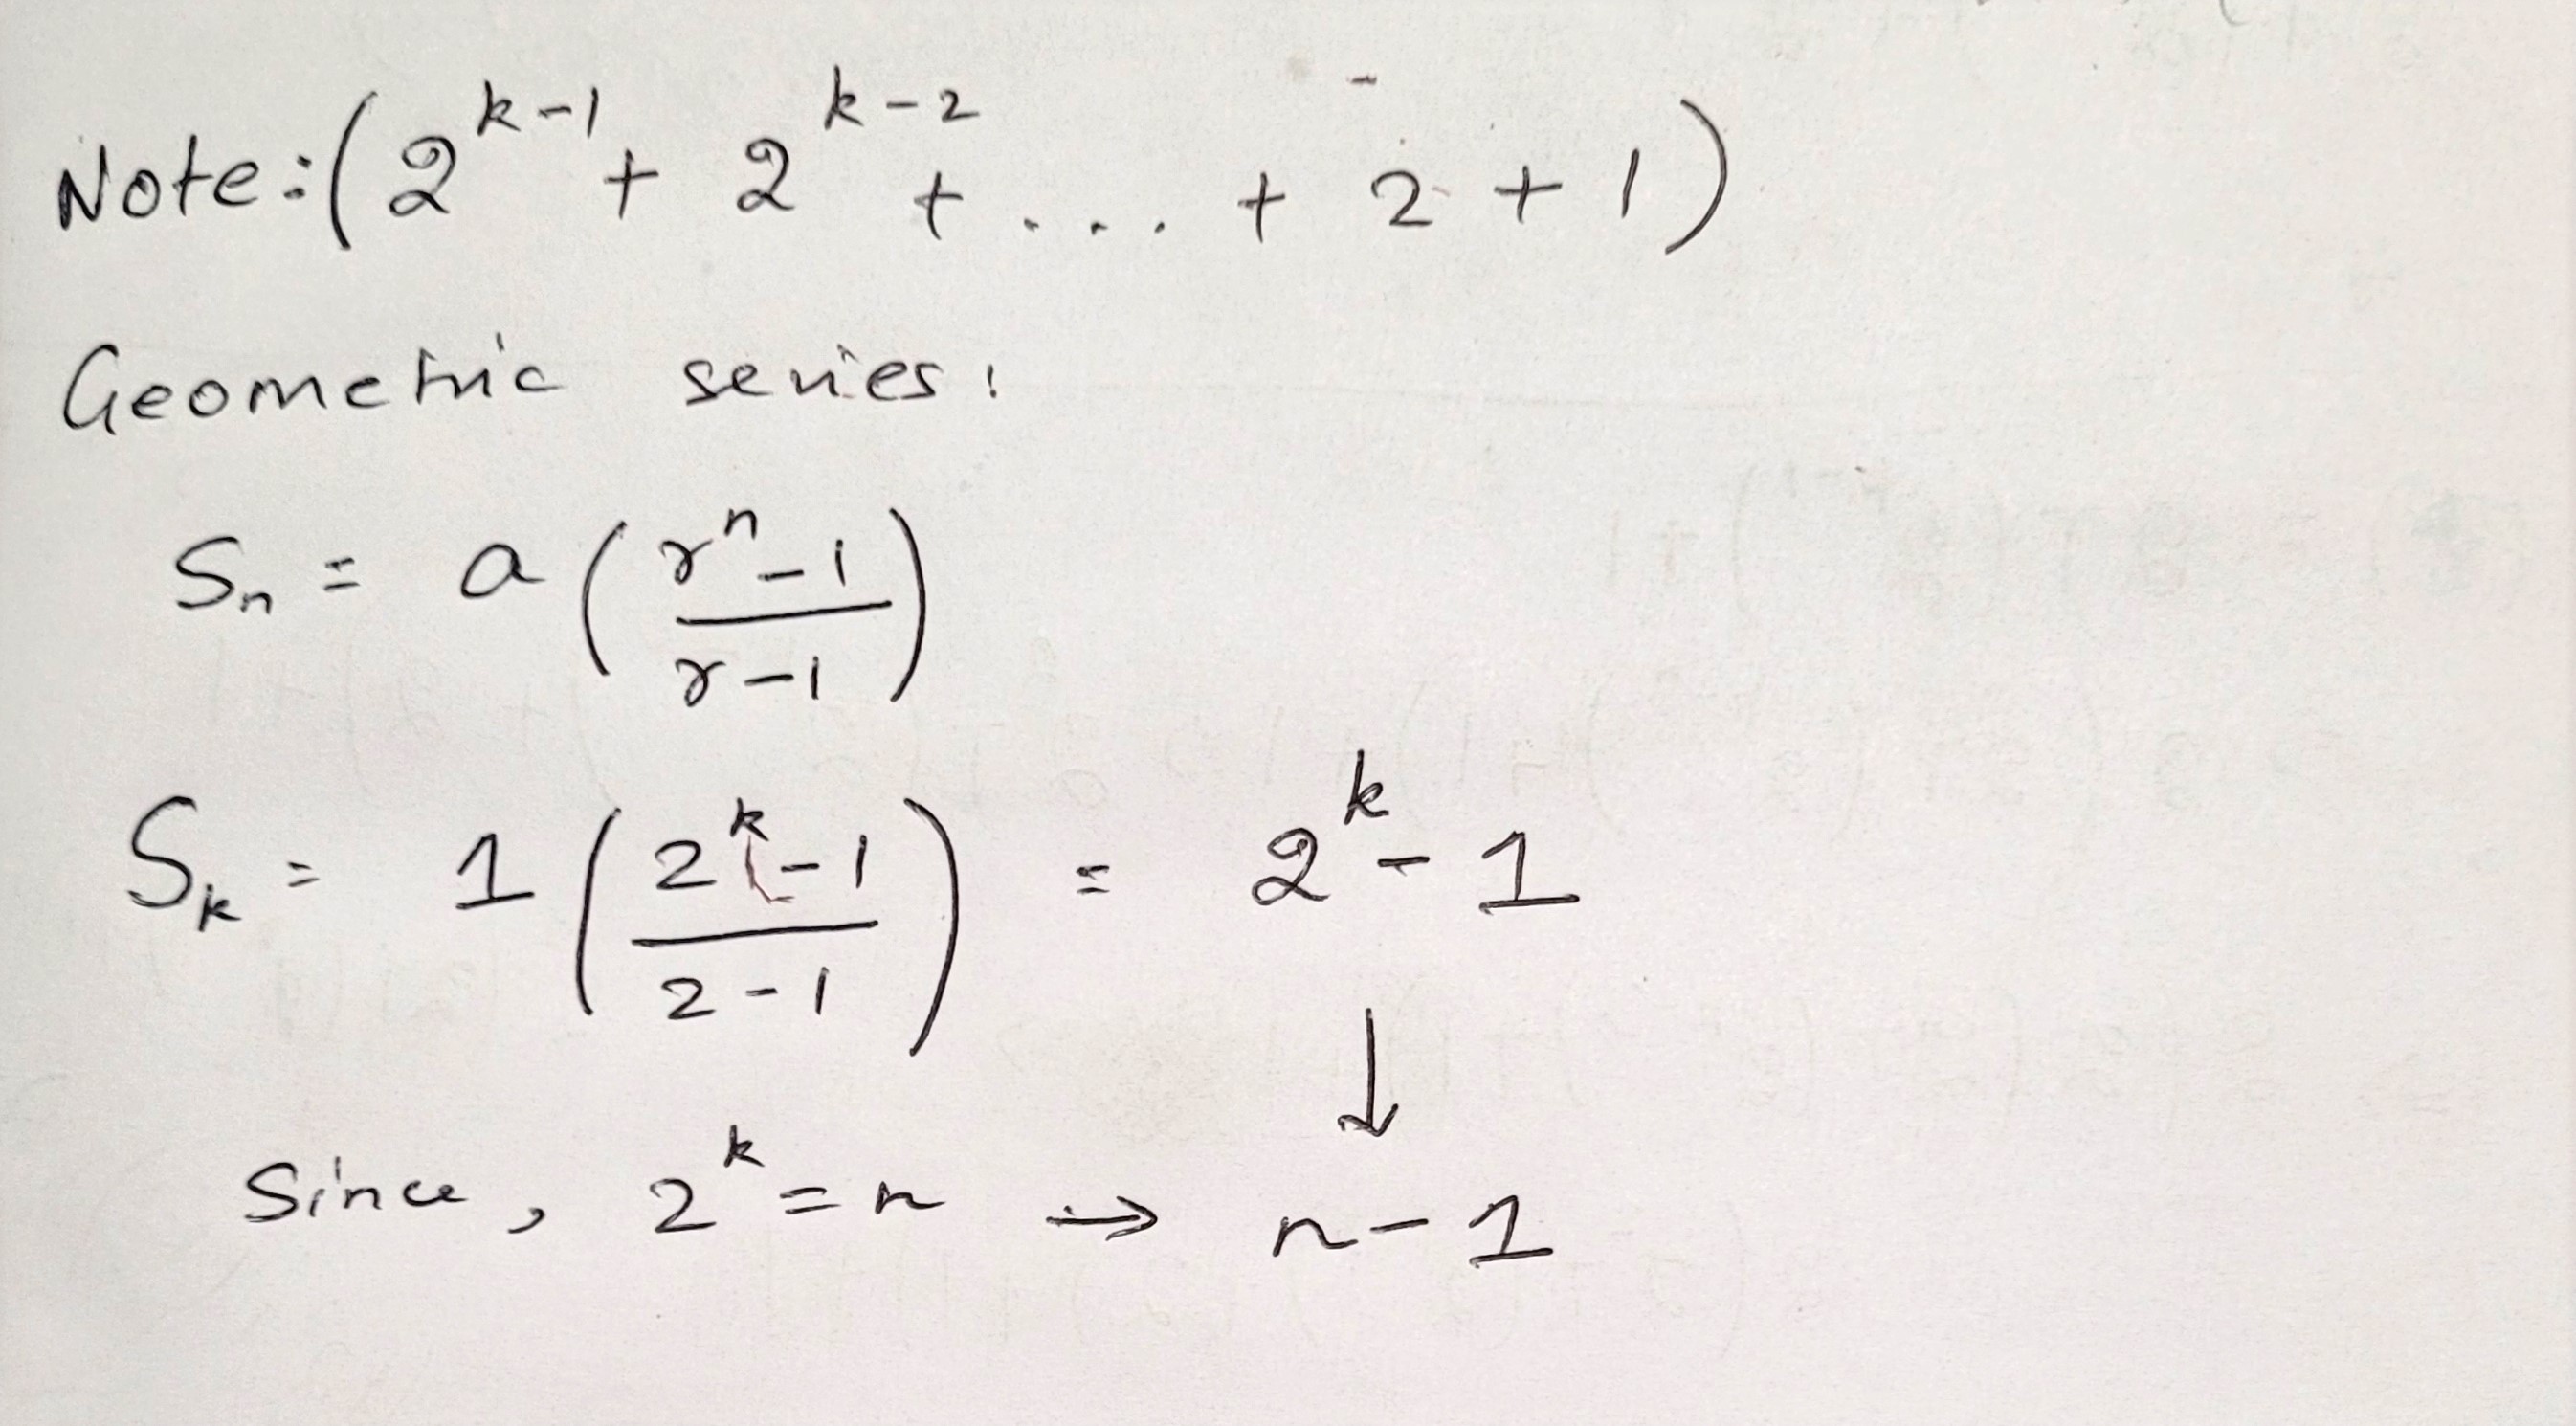 Note: (2^{k-1} + 2^{k-2} + ... + 2 + 1)
Geometric series:
S_n = a ( (r^n - 1) / (r - 1) )
S_k = 1 ( (2^k - 1) / (2 - 1) ) = 2^k - 1
↓
Since, 2^k = n → n - 1